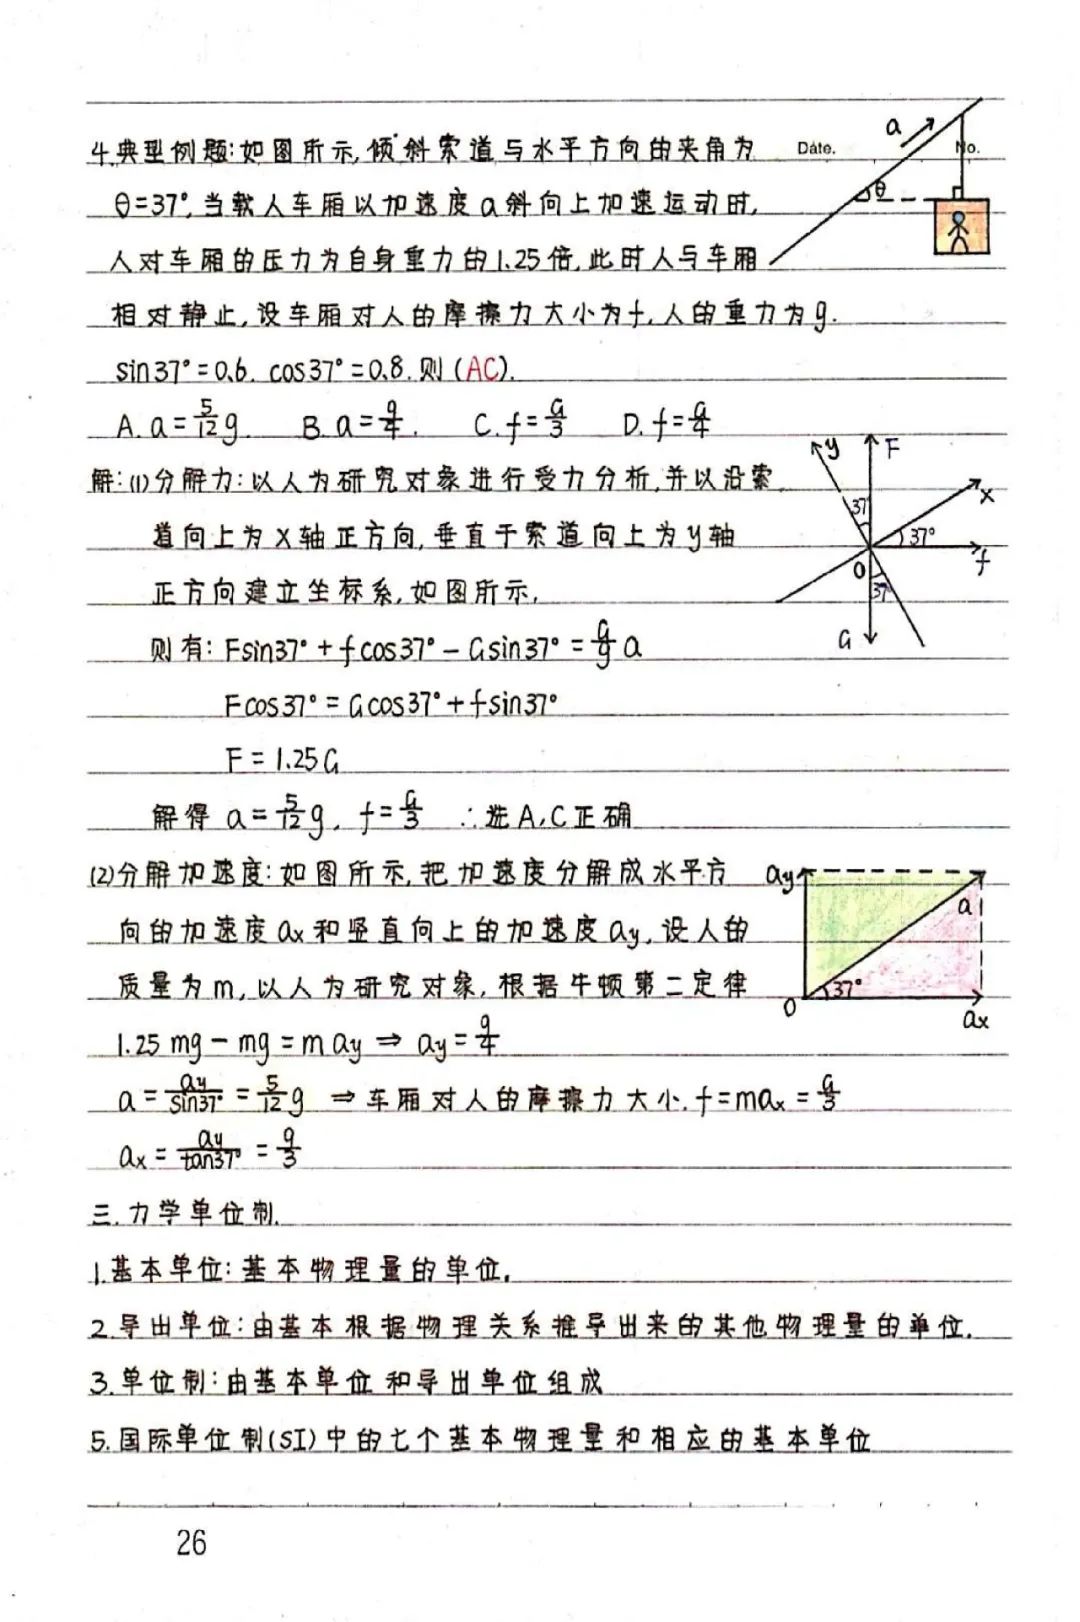 Date.
No.
a
θ
4.典型例题:如图所示,倾斜索道与水平方向的夹角为
θ=37°,当载人车厢以加速度a斜向上加速运动时,
人对车厢的压力为自身重力的1.25倍,此时人与车厢
相对静止,设车厢对人的摩擦力大小为f,人的重力为g.
sin37°=0.6. cos37°=0.8.则(AC).
A. a=5/12 g. B. a=g/4. C. f=G/3 D. f=G/4
解:(1)分解力:以人为研究对象进行受力分析,并以沿索
道向上为X轴正方向,垂直于索道向上为y轴
正方向建立坐标系,如图所示,
y F x 37° 37° f O 37° G
则有: Fsin37°+fcos37°-Gsin37°=G/g a
Fcos37°=Gcos37°+fsin37°
F=1.25G
解得 a=5/12 g, f=G/3 ∴选A,C正确
(2)分解加速度:如图所示,把加速度分解成水平方
向的加速度ax和竖直向上的加速度ay,设人的
质量为m,以人为研究对象,根据牛顿第二定律
ay a 37° O ax
1.25mg-mg=may ⇒ ay=g/4
a=ay/sin37°=5/12 g ⇒车厢对人的摩擦力大小.f=max=G/3
ax=ay/tan37°=g/3
三.力学单位制.
1.基本单位:基本物理量的单位.
2.导出单位:由基本根据物理关系推导出来的其他物理量的单位.
3.单位制:由基本单位和导出单位组成
5.国际单位制(SI)中的七个基本物理量和相应的基本单位
26